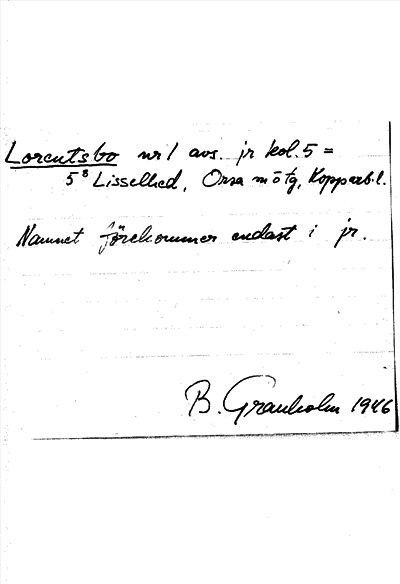 Lorentsbo nr 1 avs. jr kol. 5 =
5⁸ Lisselhed, Orsa m o tg, Kopparb. l.
Namnet förekommer endast i jr.
B. Granholm 1946